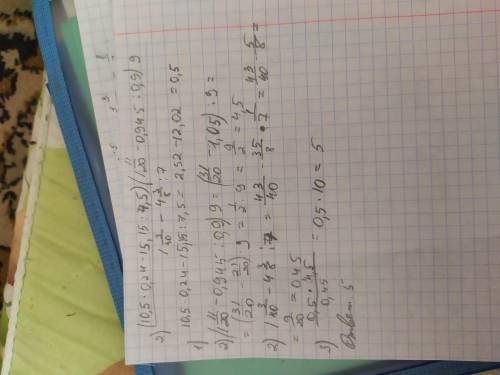 2) (10,5 · 0,24 - 15,15 : 7,5) (1 11/20 - 0,945 : 0,9) 9
1 3/40 - 4 3/8 : 7
1) 10,5 · 0,24 - 15,15 : 7,5 = 2,52 - 12,02 = 0,5
2) (1 11/20 - 0,945 : 0,9) 9 = (31/20 - 1,05) · 9 =
= (31/20 - 21/20) · 9 = 1/2 · 9 = 9/2 = 4,5
2) 1 3/40 - 4 3/8 : 7 = 43/40 - 35/8 · 1/7 = 43/40 - 5/8 =
= 9/20 = 0,45
3) 0,5 · 4,5 / 0,45 = 0,5 · 10 = 5
Ответ: 5